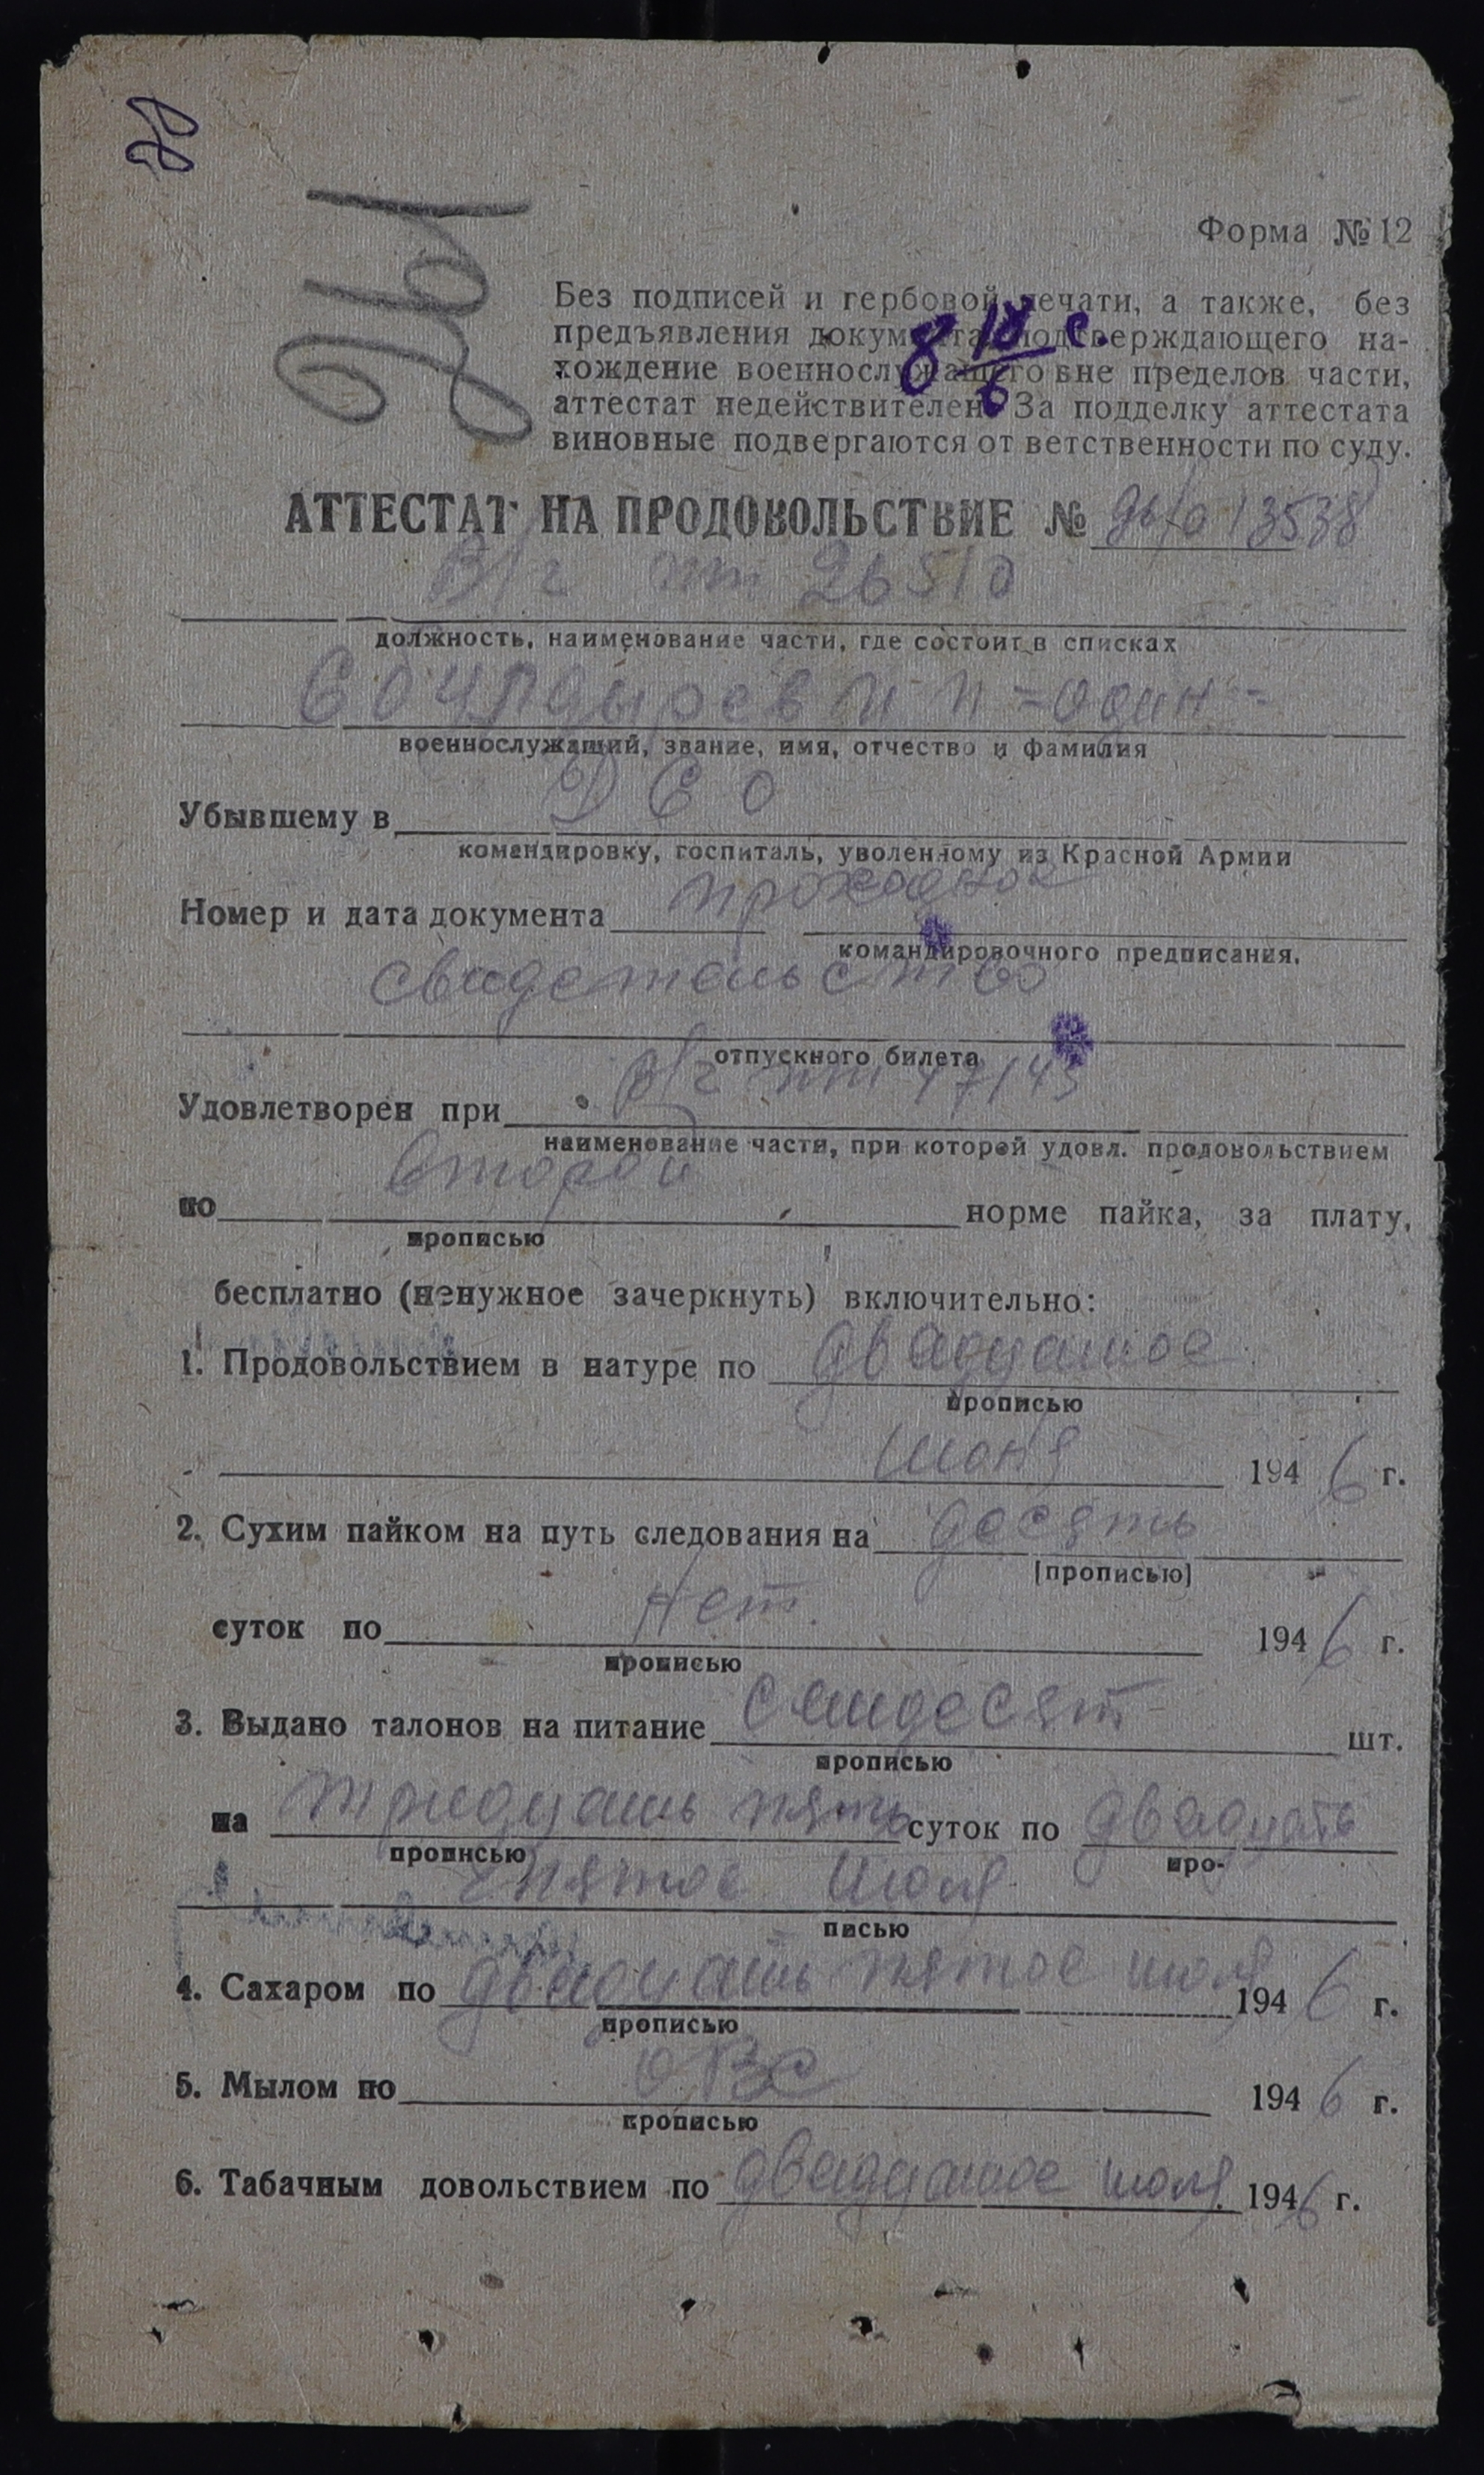 Форма № 12
Без подписей и гербовой печати, а также, без
предъявления документа, подтверждающего на-
хождение военнослужащего вне пределов части,
аттестат недействителен. За подделку аттестата
виновные подвергаются от ветственности по суду.
АТТЕСТАТ НА ПРОДОВОЛЬСТВИЕ № 13538
В/ч пп 26510
должность, наименование части, где состоит в списках
= один =
военнослужащий, звание, имя, отчество и фамилия
Убывшему в
командировку, госпиталь, уволенному из Красной Армии
Номер и дата документа проходное
командировочного предписания.
свидетельство
отпускного билета
Удовлетворен при В/ч пп 47143
наименование части, при которой удовл. продовольствием
по второй норме пайка, за плату,
прописью
бесплатно (ненужное зачеркнуть) включительно:
1. Продовольствием в натуре по двадцатое
прописью
июня 1946 г.
2. Сухим пайком на путь следования на десять
(прописью)
суток по Нет. 1946 г.
прописью
3. Выдано талонов на питание семдесят шт.
прописью
на тридцать пять суток по двадцать
прописью про-
пятое июля
писью
4. Сахаром по двадцать пятое июля 1946 г.
прописью
5. Мылом по ОВС 1946 г.
прописью
6. Табачным довольствием по двадцатое июля 1946 г.